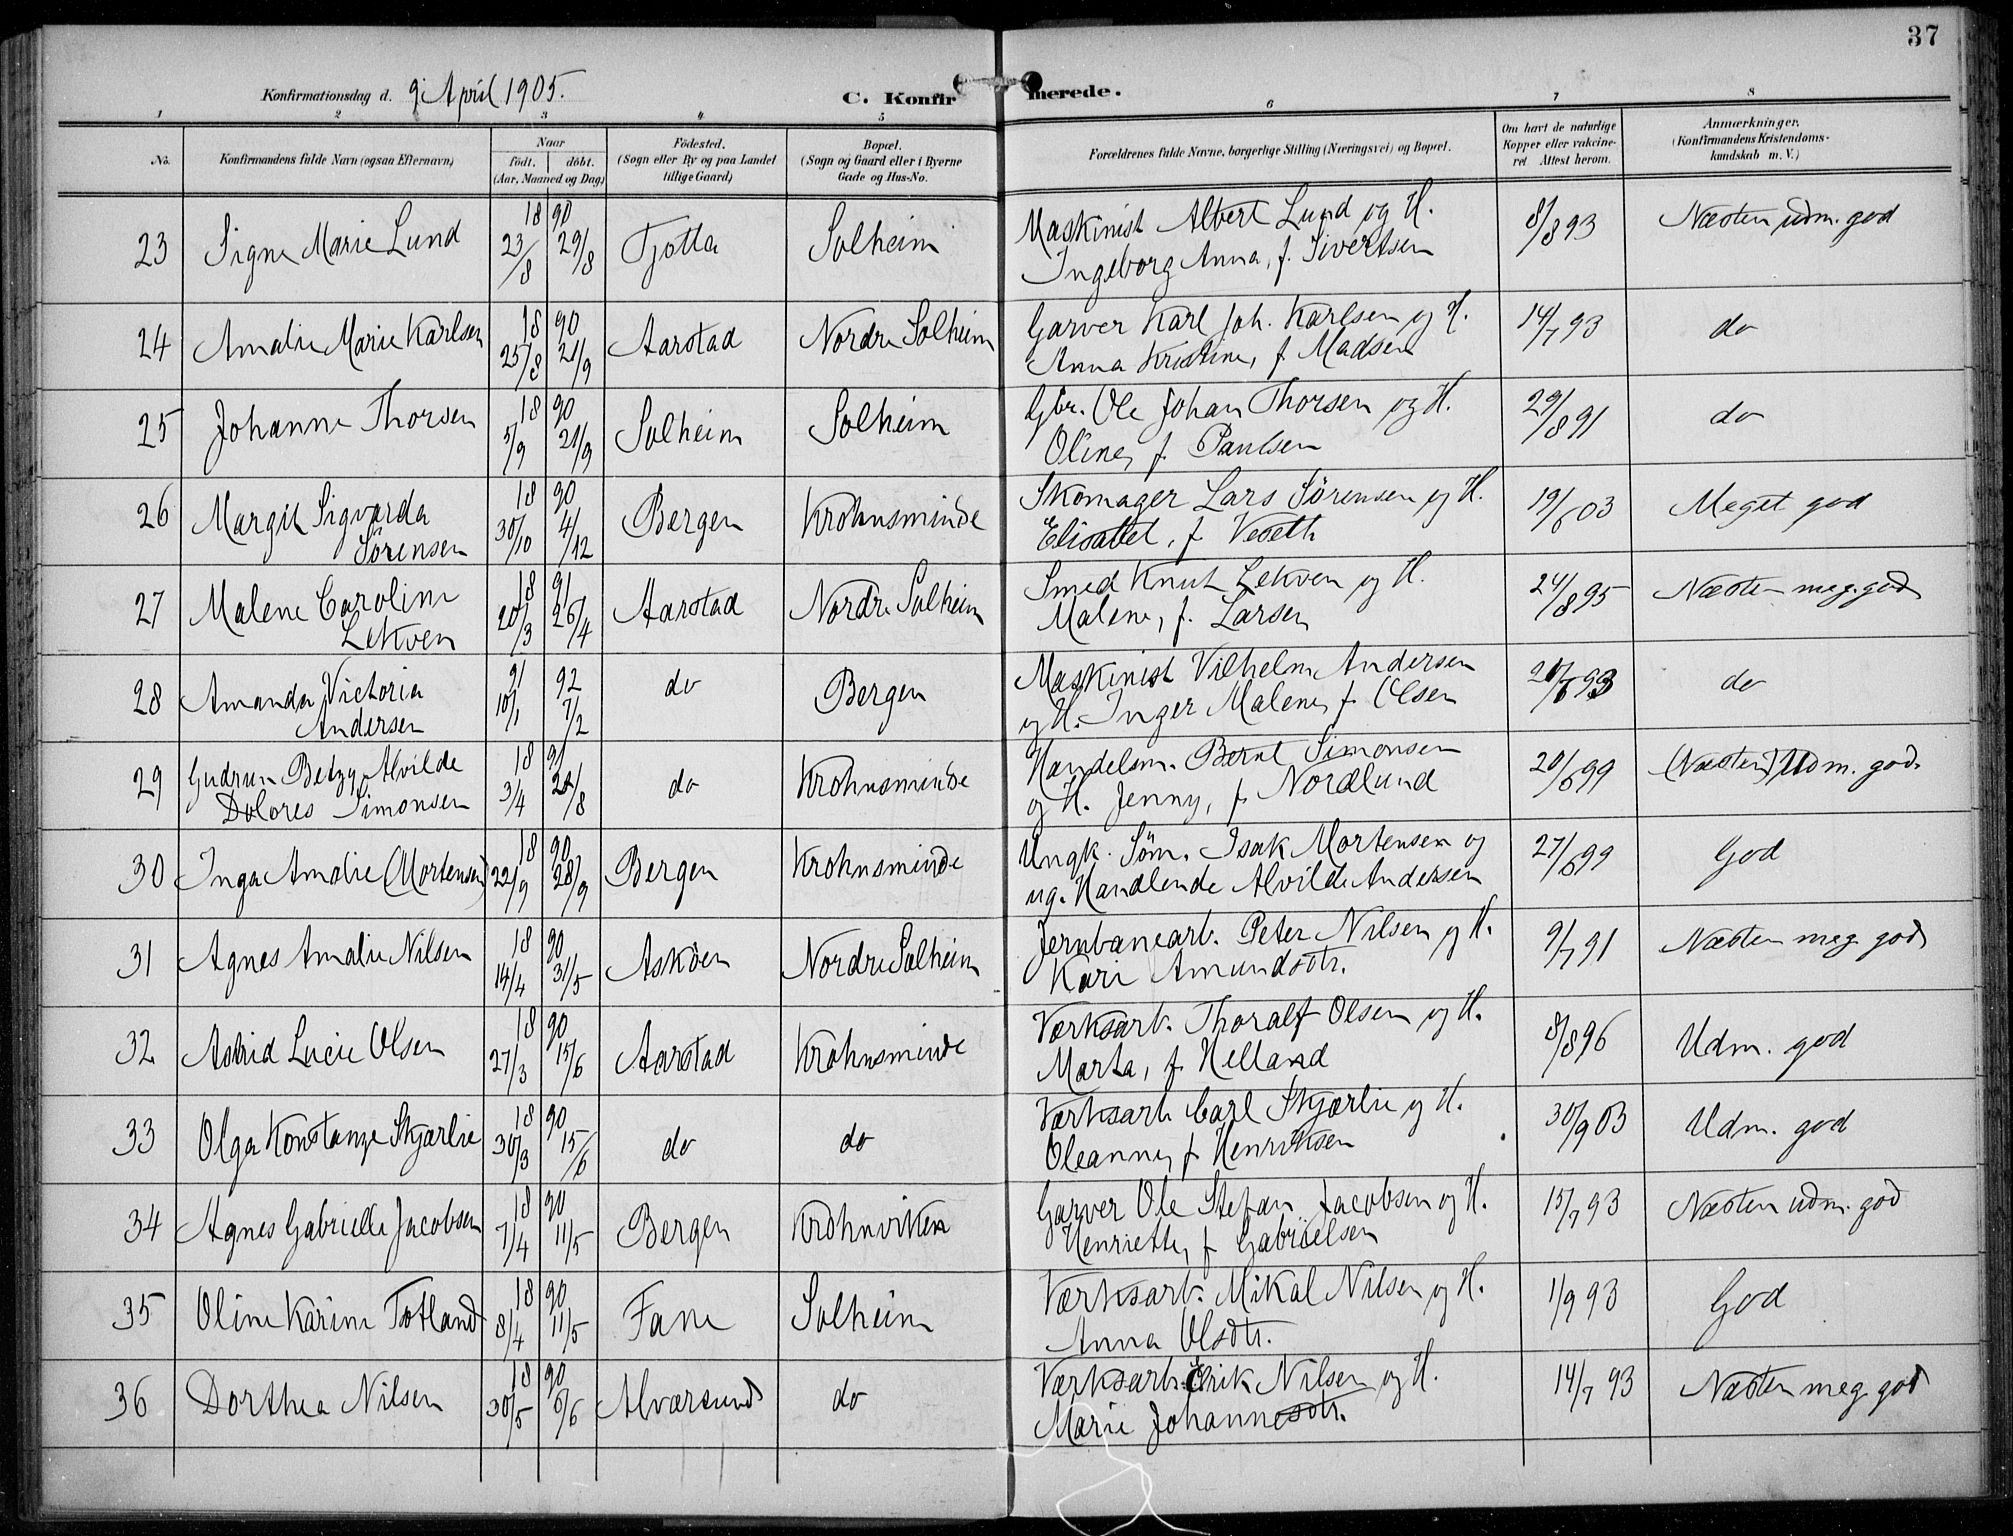 37
Konfirmationsdag d. 9 April 1905.
C. Konfirmerede.
1 2 3 4 5 6 7 8
No.
Konfirmandens fulde Navn (ogsaa Efternavn)
Naar
født. døbt.
(Aar, Maaned og Dag)
Fødested.
(Sogn eller By og paa Landet
tillige Gaard)
Bopæl.
(Sogn og Gaard eller i Byerne
Gade og Hus-No.
Forældrenes fulde Navne, borgerlige Stilling (Næringsvei) og Bopæl.
Om havt de naturlige
Kopper eller vakcine-
ret Attest herom.
Anmærkninger.
(Konfirmandens Kristendoms-
kundskab m. V.)
23 Signe Marie Lund 18 90 23/8 29/8 Tjotta Solheim Maskinist Albert Lund og H. 8/8 93 Næsten udm. god
Ingeborg Anna, f. Sivertsen
24 Amalie Marie Karlsen 18 90 25/8 21/9 Aarstad Nordre Solheim Garver Karl Joh. Karlsen og H. 14/7 93 do
Anna Kristine, f. Madsen
25 Johanne Thorsen 18 90 5/9 21/9 Solheim Solheim Gbr. Ole Johan Thorsen og H. 29/8 91 do
Oline, f. Paulsen
26 Margit Sigvarda 18 90 30/10 4/12 Bergen Krohnsminde Skomager Lars Sörensen og H. 19/6 03 Meget god
Sörensen Elisabet, f. Veseth
27 Malene Caroline 18 91 20/3 26/4 Aarstad Nordre Solheim Smed Knut Lekven og H. 24/8 95 Næsten meg. god
Lekven Malene, f. Larsen
28 Amanda Victoria 91 92 10/1 7/2 do Bergen Maskinist Vilhelm Andersen 93 do
Andersen og H. Inger Malene, f. Olsen
29 Gudrun Betzy Alvilde 18 91 3/4 /8 do Krohnsminde Handelsm. Bernt Simonsen 20/6 99 (Næsten) Udm. god.
Dolores Simonsen og H. Jenny, f. Nordlund
30 Inga Amalie (Mortensen) 18 90 22/9 28/9 Bergen Krohnsminde Ungk. Söm. Isak Mortensen og 27/6 99 God
ug. Handlende Alvilde Andersen
31 Agnes Amalie Nilsen 18 90 14/4 31/5 Asköen Nordre Solheim Jernbanearb. Peter Nilsen og H. 9/7 91 Næsten meg god
Kari Amundsdtr.
32 Astrid Lucie Olsen 18 90 27/3 15/6 Aarstad Krohnsminde Værksarb. Thoralf Olsen og H. 8/8 96 Udm. god
Marta, f. Helland
33 Olga Konstanze Skjærlie 18 90 30/3 15/6 do do Værksarb. Carl Skjærlie og H. 30/9 03 Udm. god
Oleanne, f Henriksen
34 Agnes Gabrielle Jacobsen 18 90 7/4 11/5 Bergen Krohnviken Garver Ole Stefan Jacobsen og H. 15/7 93 Næsten udm. god
Henriette, f Gabrielsen
35 Oline Karine Totland 18 90 8/4 11/5 Fane Solheim Værksarb. Mikal Nilsen og H. 1/9 93 God
Anna Olsdtr.
36 Dorthea Nilsen 18 90 30/5 6/6 Alværsund do Værksarb. Erik Nilsen og H. 14/7 93 Næsten meg god
Marie Johannesdtr.